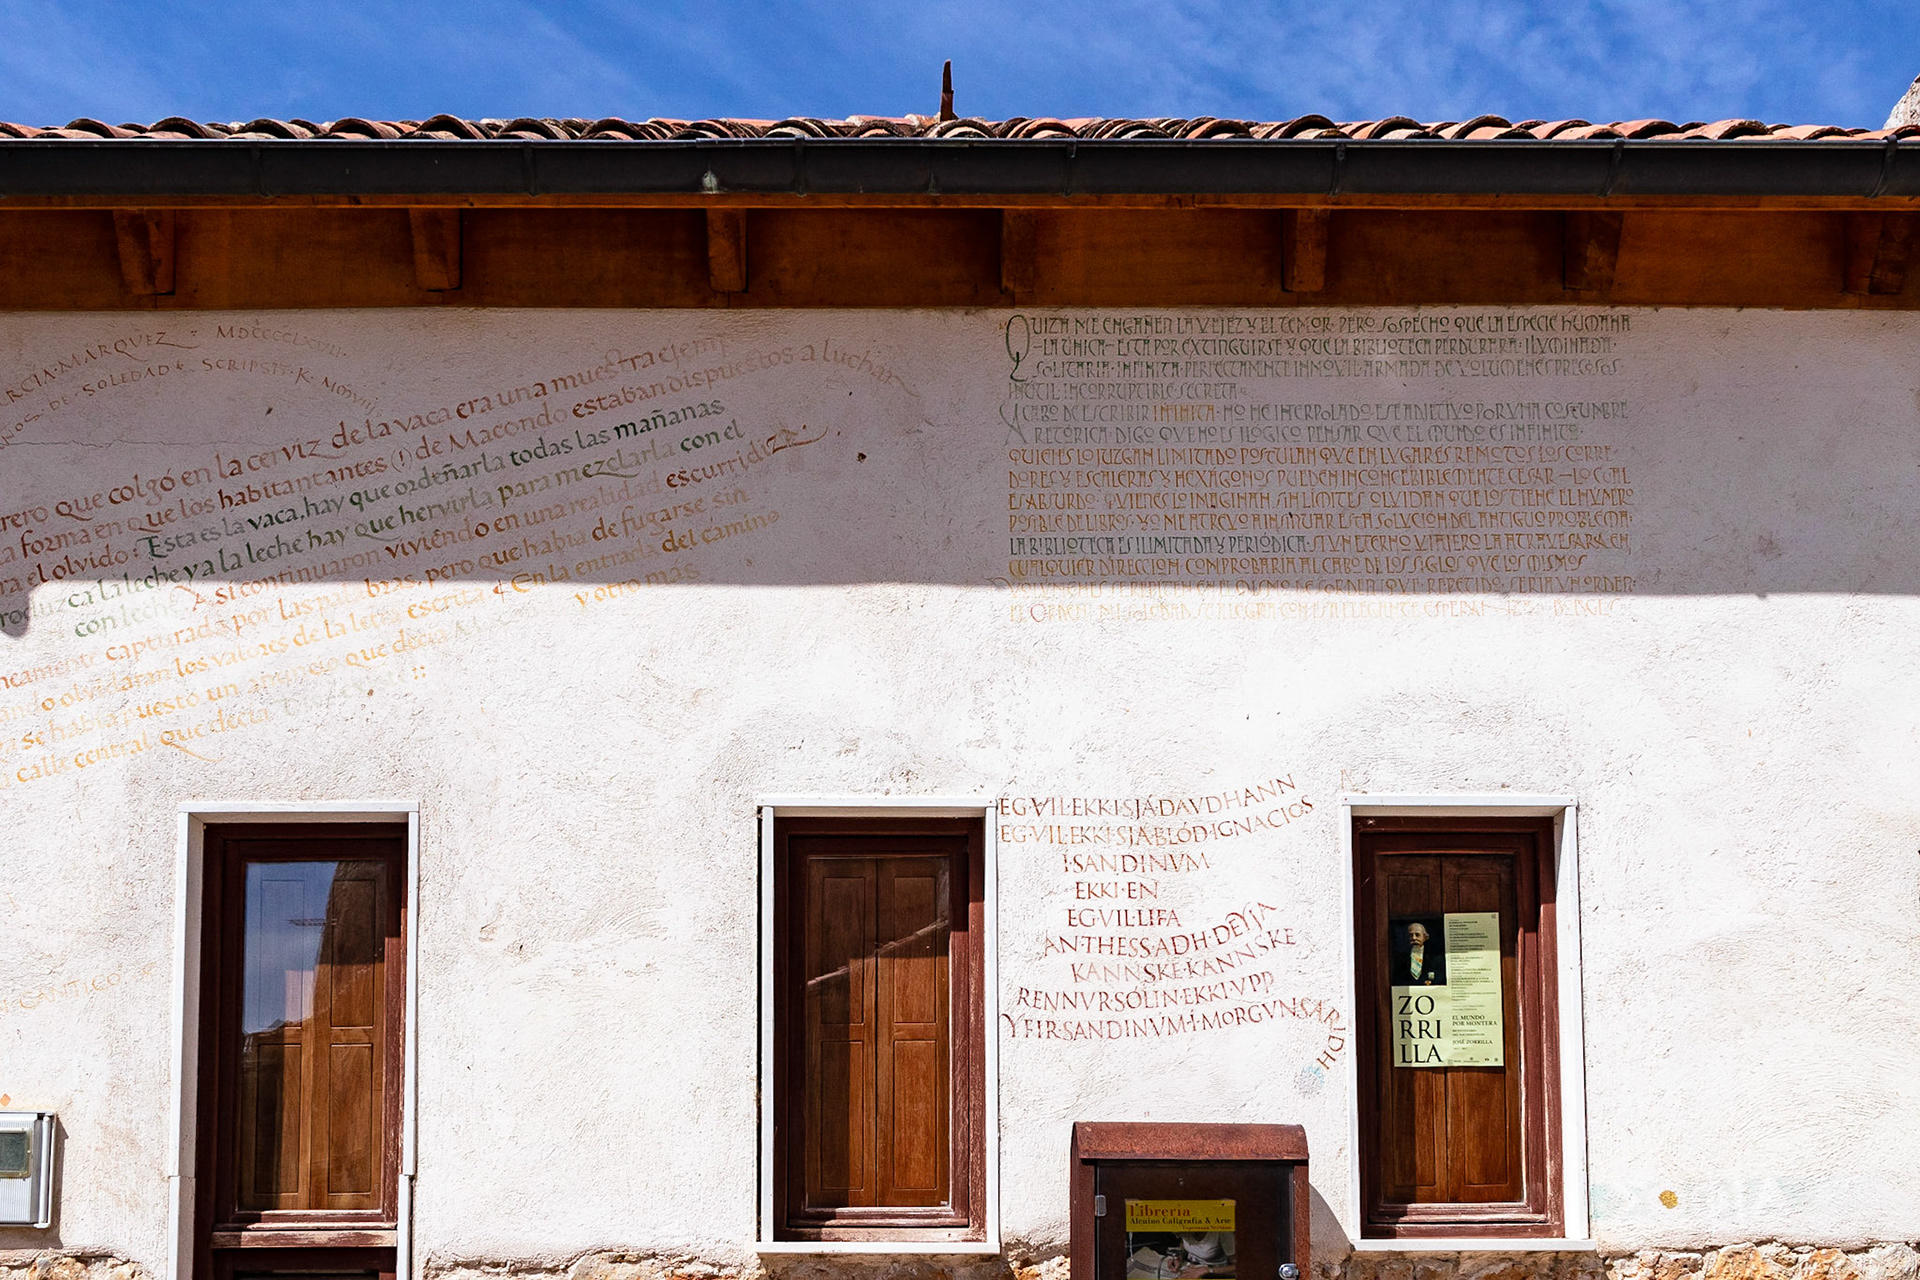 RCIA·MÁRQUEZ MDCCCCLXVII
DE·SOLEDAD SCRIPSIT·K
que colgó en la cerviz de la vaca era una muestra
forma en que los habitantantes (!) de Macondo estaban dispuestos a luchar
el olvido: Esta es la vaca, hay que ordeñarla todas las mañanas
produzca la leche y a la leche hay que hervirla para mezclarla con el
con leche. Asi continuaron viviendo en una realidad escurridiza
capturada por las palabras, pero que habia de fugarse sin
olvidaran los valores de la letra escrita En la entrada del camino
se habia puesto un anuncio que decia y otro más
calle central que decia
QUIZA ME ENGAÑEN LA VEJEZ Y EL TEMOR· PERO SOSPECHO QUE LA ESPECIE HUMANA
—LA ÚNICA— ESTA POR EXTINGUIRSE Y QUE LA BIBLIOTECA PERDURARA· ILUMINADA·
SOLITARIA· INFINITA· PERFECTAMENTE INMOVIL· ARMADA DE VOLUMENES PRECIOSOS·
INÚTIL· INCORRUPTIBLE· SECRETA·
ACABO DE ESCRIBIR INFINITA· NO HE INTERPOLADO ESE ADJETIVO POR UNA COSTUMBRE
RETÓRICA· DIGO QUE NO ES ILÓGICO PENSAR QUE EL MUNDO ES INFINITO·
QUIENES LO JUZGAN LIMITADO POSTULAN QUE EN LUGARES REMOTOS LOS CORRE·
DORES Y ESCALERAS Y HEXÁGONOS PUEDEN INCONCEBIBLEMENTE CESAR —LO CUAL
ES ABSURDO· QUIENES LO IMAGINAN SIN LÍMITES OLVIDAN QUE LOS TIENE EL NÚMERO
POSIBLE DE LIBROS· YO ME ATREVO A INSINUAR ESTA SOLUCIÓN DEL ANTIGUO PROBLEMA:
LA BIBLIOTECA ES ILIMITADA Y PERIÓDICA· SI UN ETERNO VIAJERO LA ATRAVESARA EN
CUALQUIER DIRECCION COMPROBARIA AL CABO DE LOS SIGLOS QUE LOS MISMOS
VOLUMENES SE REPITEN EN EL MISMO DESORDEN QUE· REPETIDO· SERIA UN ORDEN:
EL ORDEN· MI SOLEDAD SE ALEGRA CON ESA ELEGANTE ESPERANZA· BORGES
EG·VIL·EKKI·SJÁ·DAVDHANN
EG·VIL·EKKI·SJÁ·BLÓD·IGNACIOS
Í·SANDINVM
EKKI·EN
ÉG·VIL·LIFA
AN·THESS·ADH·DEYJA
KANNSKÉ·KANNSKE
RENNVR·SÓLIN·EKKI·VPP
YFIR·SANDINVM·Í·MORGVNSÁRIDH
GANTICO
ZO
RRI
LLA
EL MUNDO
POR MONTERA
JOSÉ ZORRILLA
Librería
Alcuino Caligrafía & Arte